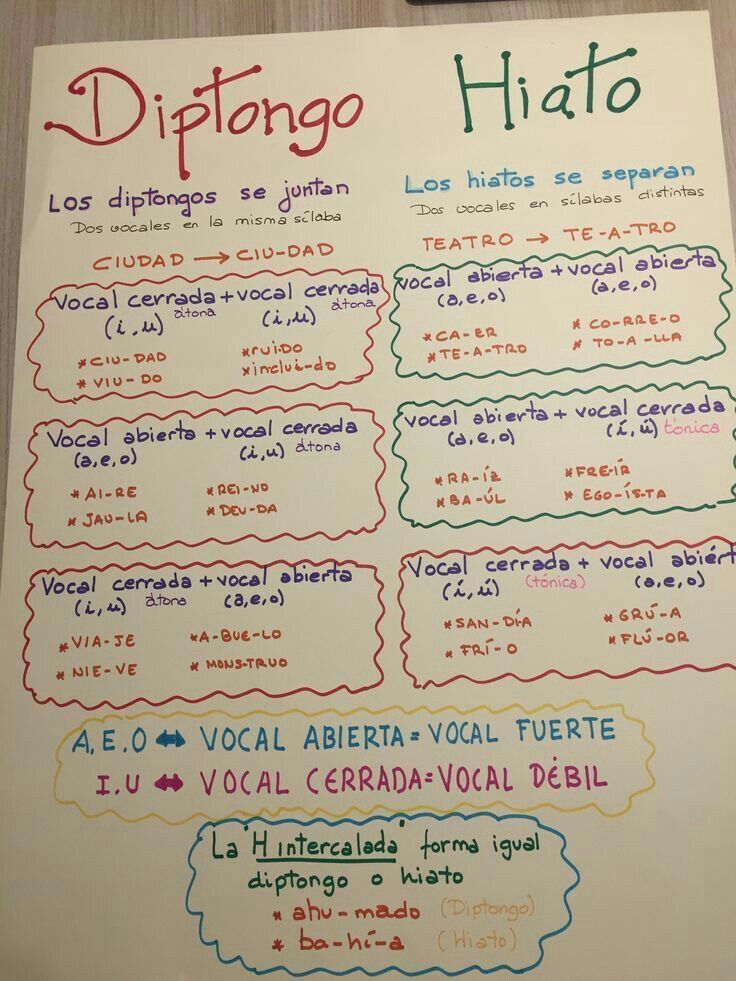 Diptongo
Los diptongos se juntan
Dos vocales en la misma sílaba
CIUDAD → CIU-DAD
Vocal cerrada + vocal cerrada
átona átona
(i, u) (i, u)
* CIU-DAD * ruido
* VIU-DO * inclui-do
Vocal abierta + vocal cerrada
(a, e, o) (i, u) átona
* AI-RE * REI-NO
* JAU-LA * DEU-DA
Vocal cerrada + vocal abierta
(i, u) átona (a, e, o)
* VIA-JE * A-BUE-LO
* NIE-VE * MONS-TRUO
Hiato
Los hiatos se separan
Dos vocales en sílabas distintas
TEATRO → TE-A-TRO
vocal abierta + vocal abierta
(a, e, o) (a, e, o)
* CA-ER * CO-RRE-O
* TE-A-TRO * TO-A-LLA
vocal abierta + vocal cerrada
(a, e, o) (í, ú) tónica
* RA-ÍZ * FRE-ÍR
* BA-ÚL * EGO-ÍS-TA
Vocal cerrada + vocal abiért
(í, ú) (tónica) (a, e, o)
* SAN-DÍA * GRÚ-A
* FRÍ-O * FLÚ-OR
A, E, O ↔ VOCAL ABIERTA = VOCAL FUERTE
I, U ↔ VOCAL CERRADA = VOCAL DÉBIL
La "H intercalada" forma igual
diptongo o hiato
* ahu-mado (Diptongo)
* ba-hí-a (Hiato)